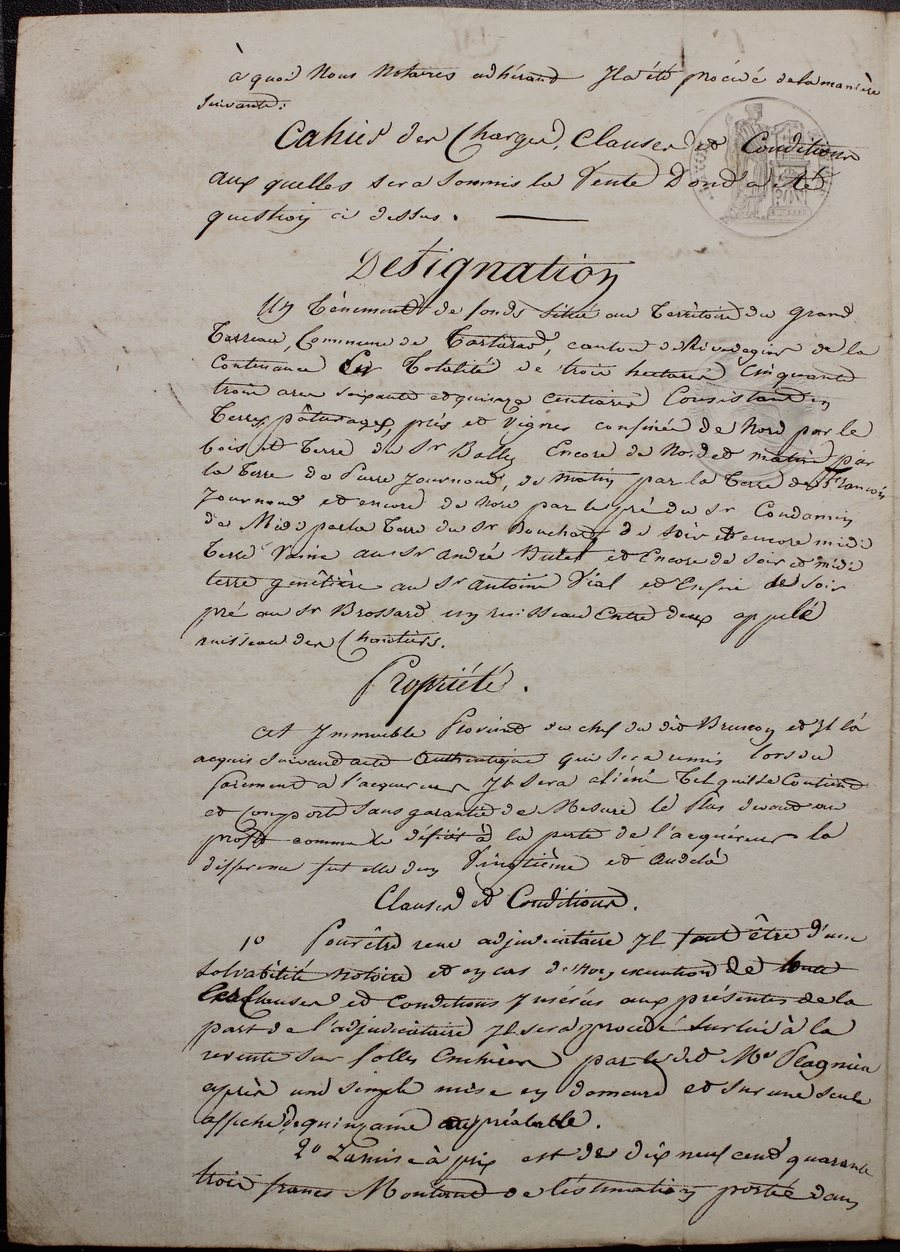 à quoi Nous Notaires adhérand Il a été procédé de la manière
suivante:
Cahier des Charges, Clauses et Conditions
aux quelles sera soumis la Vente Dont a été
question ci dessus.
Designation
Un Ténement de fonds situé au Territoire du Grand
Commune de canton de de la
Contenance En Totalité de trois hectares Cinquante
trois ares soixante et quinze centiares Consistant en
Terres, pâturages, prés et Vignes confinée de Nord par le
bois et Terre du Sr Bally Encore de Nord et matin par
la Terre de Pierre Journoud, de matin par la Terre de François
Journoud et encore de Nord par le pré du Sr Condamin
de Midi par la Terre du Sr Bouchard de Soir et encore midi
Terre Vaine au Sr andré et Encore de Soir et midi
terre genêtière au Sr antoine Vial et Enfin de Soir
pré au Sr Brossard un ruisseau Entre deux appelé
ruisseau des Chantiers.
Propriété.
Cet Immeuble Provient du chef du dit et Il l'a
acquis suivant acte Authentique qui sera remis lors du
paiement a l'acquereur Il sera aliéné Tel qu'il se Contient
et Comporte Sans garantie de Mesure le Plus devant au
profit comme le déficit à la perte de l'acquéreur la
difference fut elle d'un Vingtième et Audelà
Clauses et Conditions.
1o Pour être reçu adjudicataire Il faut être d'une
solvabilité notoire et en cas de non execution de toute
les Clauses et Conditions Inserées aux présentes de la
part de l'adjudicataire Il sera procédé sur lui à la
revente sur folle Enchère par le dit Me Plagnieu
après une simple mise en demeure et sur une seule
affiche de quinzaine au préalable.
2o La mise à prix est de dix neuf cent quarante
trois francs Montant de l'éstimation portée dans